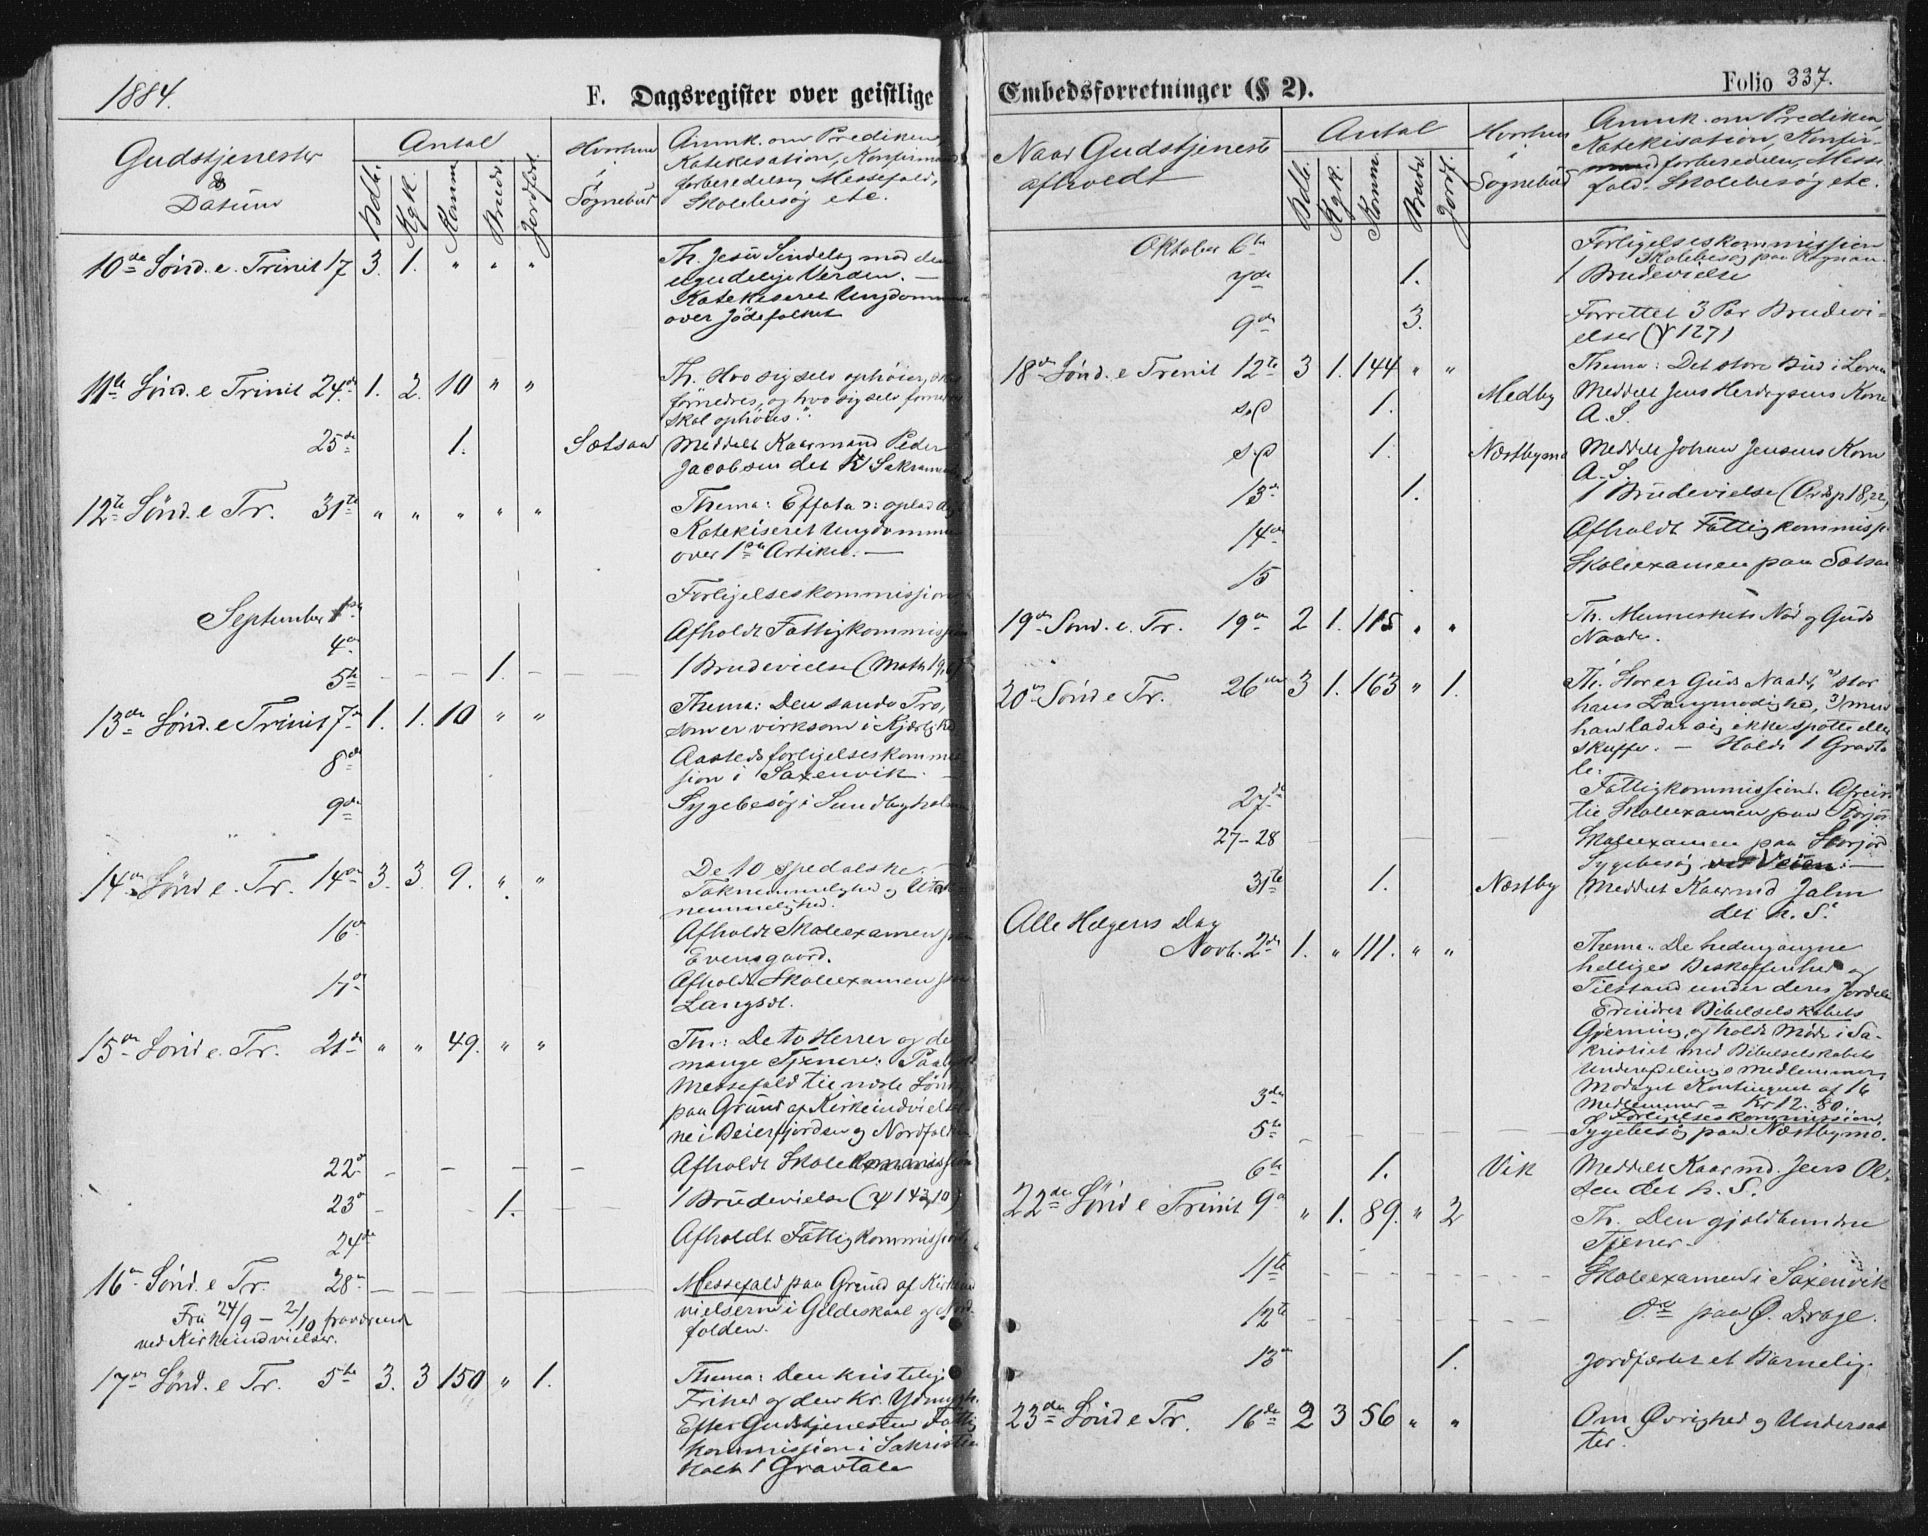 1884.
F. Dagsregister over geistlige
Gudstjenester
&
Datum
Antal
Bdb.
Kgk.
Komm.
Brudv.
Jordfst.
Hvorhen
i
Sognebud
Anmk. om Prediken,
Katekisation, Konfirmand
forberedelse, Messefald,
Skolebesøg etc.
10de Sønd. e. Trinit 17 3. 1. " " "
Th. Jesu Sindelag mod den
ugudelige Verden. —
Katekiseret Ungdommen
over Jødefolket
11te Sønd. e Trinit 24de 1. 2. 10 " "
Th. Hvo sig selv ophøier, skal
fornedres, og hvo sig selv fornedrer
skal ophøies".
25de 1. Sætsaa Meddelt Kaarmand Peder
Jacobsen det h. Sakramente
12te Sønd. e Tr. 31te " " " " "
Thema: Effata ɔ: oplad dig
Katekiseret Ungdommen
over 1ste Artikel. —
September 1ste Forligelseskommission
4de Afholdt Fattigkommission
5te - - - 1. - - 1 Brudevielse (Math 19,6)
13de Sønd. e Trinit 7de 1. 1. 10 " "
Thema: Den sande Tro,
som er virksom i Kjærlighed
8de Aastedsforligelseskommis-
sion i Saxenvik. —
9de Sygebesøg i Sundbyholmen
14de Sønd e. Tr. 14de 3. 3. 9. " "
De 10 spedalske.
Taknemmelighed og Utak-
nemmelighed.
16de Afholdt Skoleexamen paa
Evensgaard.
17de Afholdt Skoleexamen paa
Langsdt.
15de Sønd e. Tr. 21de " " 49. " "
Th.: De to Herrer og de
mange Tjenere: Paalyst
Messefald til næste Sønd.
paa Grund af Kirkeindvielser-
ne i Beierfjorden og Nordfolden
22de - - - - - Afholdt Skolekommission
23de - - - 1. - - 1 Brudevielse (ψ 143,10)
24de Afholdt Fattigkommission
16de Sønd. e Tr. 28de — — — — — —
Messefald paa Grund af Kirkeind
vielserne i Gildeskaal og Nord-
folden.
Fra 24/9 – 2/10 fraværende
ved Kirkeindvielser.
17de Sønd. e Tr. 5te 3. 3 150 " 1.
Thema: Den kristelige
Frihed og den kr. Ydmygh.
Efter Gudstjenesten Fattig
kommission i Sakristiet
Holdt 1 Gravtale
Embedsforretninger (§ 2).
Folio 337.
Naar Gudstjeneste
afholdt
Antal
Bdb.
Kgk.
Komm.
Brudv.
Jordf.
Hvorhen
i
Sognebud
Anmk. om Prediken,
Katekisation, Konfir-
mandforberedelse, Messe
fald. Skolebesøg etc.
Oktober 6te Forligelseskommission
Skolebesøg paa Rognan.
7de 1. 1 Brudevielse
9de 3. Forrettet 3 Par Brudevi-
elser (ψ 127)
18de Sønd. e Trinit 12te 3 1. 144 " " Thema: Det store Bud i Loven
s.D 1. Medby Meddelt Jens Kone
A. S.
s.D 1. Næstbymo Meddelt Johan Jensens Kone
A. S.
13de 1. 1 Brudevielse (Ordsp 18,22)
14de Afholdt Fattigkommissi
15 Skoleexamen paa Sætsaa
19de Sønd. e. Tr. 19de 2 1. 115 " " Th. Menneskets Nød og Guds
Naade.
20de Sønd e Tr. 26de 3 1. 163 " 1. Th. Stor er Guds Naade, 2) stor
hans Langmodighed, 3) men
han lader sig ikke spotte eller
skuffe. — Holdt 1 Gravta
le.
27de Fattigkommission. Afreist
til Skoleexamen paa Storjor
27-28 Skoleexamen paa Storjord
Sygebesøg
31te 1. Næstby Meddelt Kaarmd Jalm
det h. S.
Alle Helgens Dag
Novb. 2den 1. " 111. " " Thema. De hedengangne
helliges Beskaffenhed og
Tilstand under deres Jordeliv
Erindret Bibelselskabets
Gjerning, og holdt Møde i Sa-
kristiet med Bibelselskabets
Underafdelings Medlemmer,
Modtaget Kontingent af 16
Medlemmer = Kr 12. 80.
3de og Forligelseskommission,
5te — — — — Sygebesøg paa Næstbymo.
6te 1. Vik Meddelt Kaarmd. Jens Ol-
sen det h. S.
22de Sønd e Trinit 9de " 1. 89. " 2 Th. Den gjældbundne
Tjener.
11te - - - - - - Skoleexamen i Saxenvik
12te - - - - - - Do paa Ø. Drage.
13de 1. Jordfæstet et Barnelig.
23de Sønd e Tr. 16de 2 3 56 " " Om Øvrighed og Undersaat
ter.